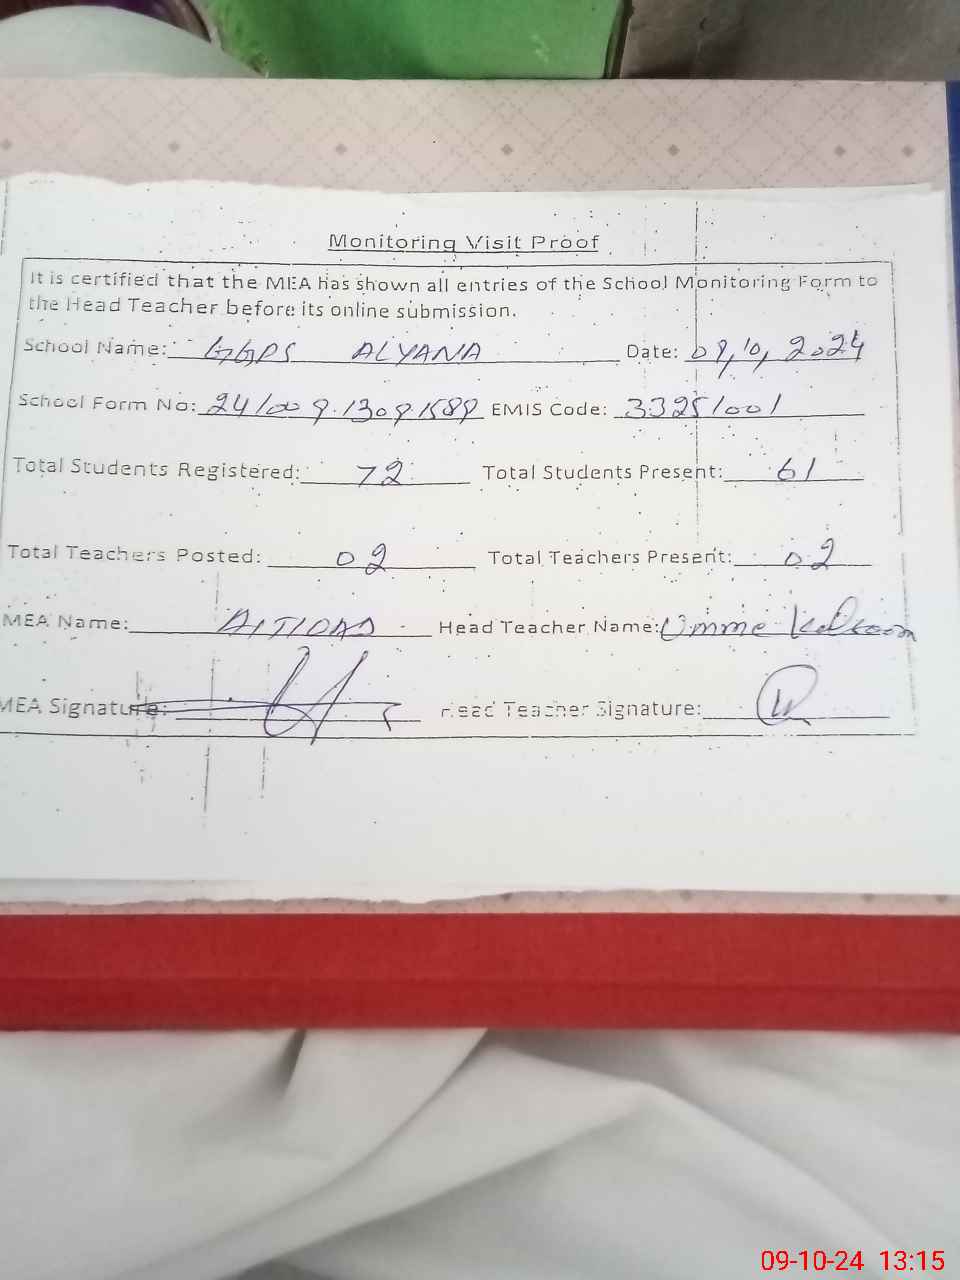 Monitoring Visit Proof
It is certified that the MEA has shown all entries of the School Monitoring Form to
the Head Teacher before its online submission.
School Name: GGPS ALYANA Date: 09,10,2024
School Form No: EMIS Code: 33251001
Total Students Registered: 72 Total Students Present: 61
Total Teachers Posted: 02 Total Teachers Present: 02
MEA Name: Head Teacher Name: Umme Kalsoom
MEA Signature: Head Teacher Signature:
09-10-24 13:15